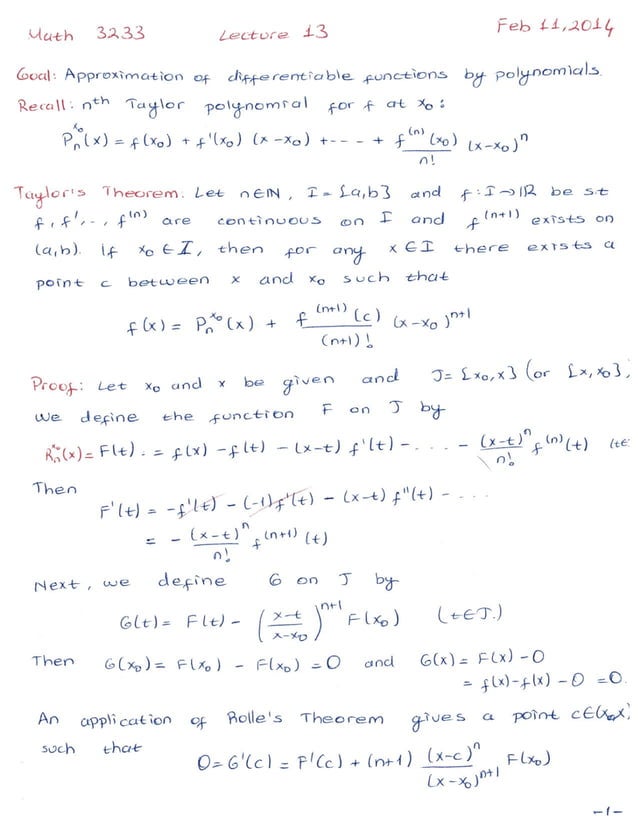 Math 3233 Lecture 13 Feb 11, 2014
Goal: Approximation of differentiable functions by polynomials.
Recall: nth Taylor polynomial for f at x₀:
Pₙˣ⁰(x) = f(x₀) + f'(x₀) (x-x₀) + ---- + f⁽ⁿ⁾(x₀)/n! (x-x₀)ⁿ
Taylor's Theorem: Let n∈ℕ, I = [a,b] and f: I→ℝ be s.t
f, f', .., f⁽ⁿ⁾ are continuous on I and f⁽ⁿ⁺¹⁾ exists on
(a,b). If x₀ ∈ I, then for any x ∈ I there exists a
point c between x and x₀ such that
f(x) = Pₙˣ⁰(x) + f⁽ⁿ⁺¹⁾(c)/(n+1)! (x-x₀)ⁿ⁺¹
Proof: Let x₀ and x be given and J = [x₀,x] (or [x,x₀])
We define the function F on J by
Rₙˣ⁰(x) = F(t) := f(x) - f(t) - (x-t) f'(t) - .... - (x-t)ⁿ/n! f⁽ⁿ⁾(t) (t∈
Then
F'(t) = -f'(t) - (-1)f'(t) - (x-t) f''(t) - ....
= - (x-t)ⁿ/n! f⁽ⁿ⁺¹⁾(t)
Next, we define G on J by
G(t) = F(t) - ((x-t)/(x-x₀))ⁿ⁺¹ F(x₀) (t∈J.)
Then G(x₀) = F(x₀) - F(x₀) = 0 and G(x) = F(x) - 0
= f(x) - f(x) - 0 = 0.
An application of Rolle's Theorem gives a point c∈(x₀,x)
such that
0 = G'(c) = F'(c) + (n+1) (x-c)ⁿ/(x-x₀)ⁿ⁺¹ F(x₀)
-1-